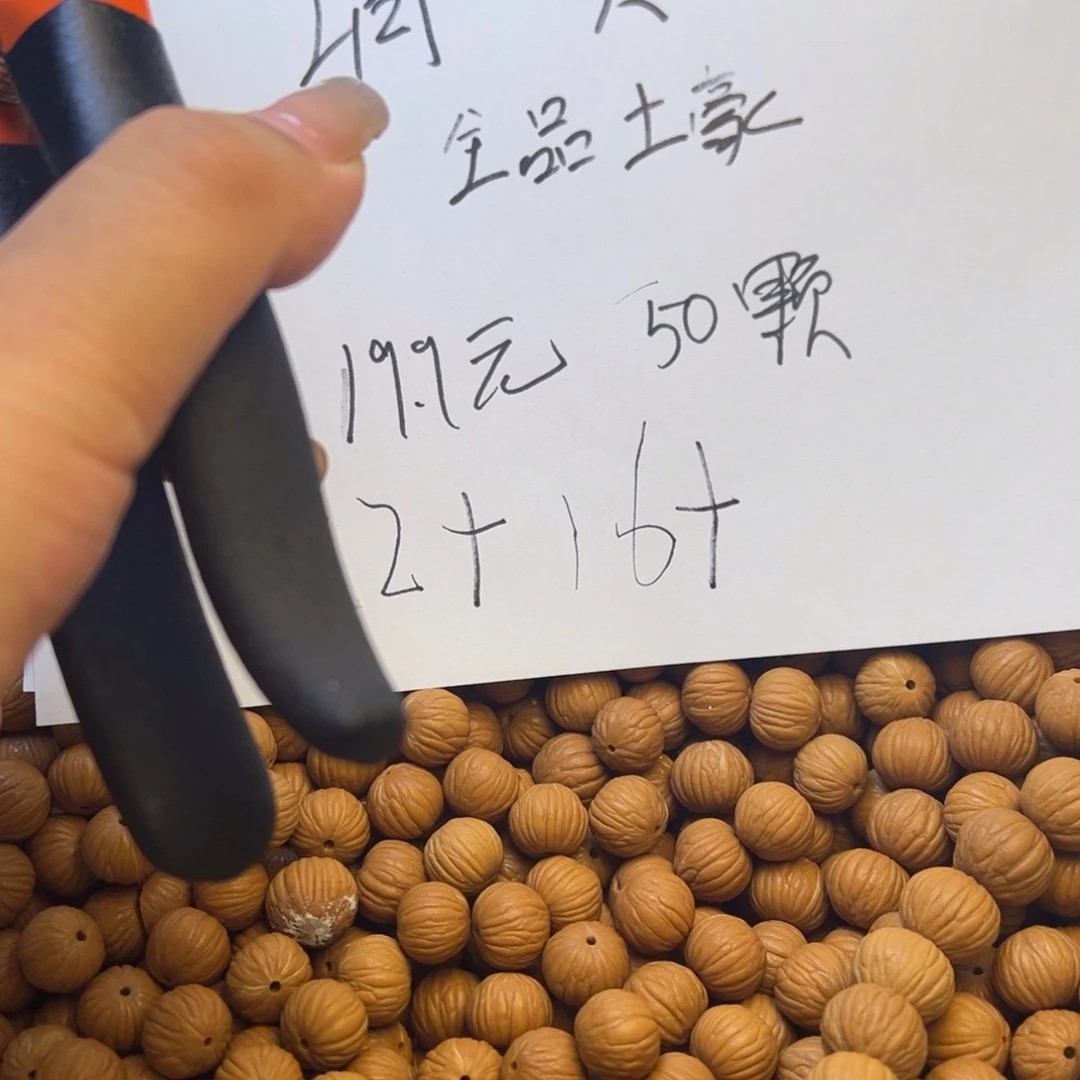 全品土豪
19.9元 50颗
2+ 16+